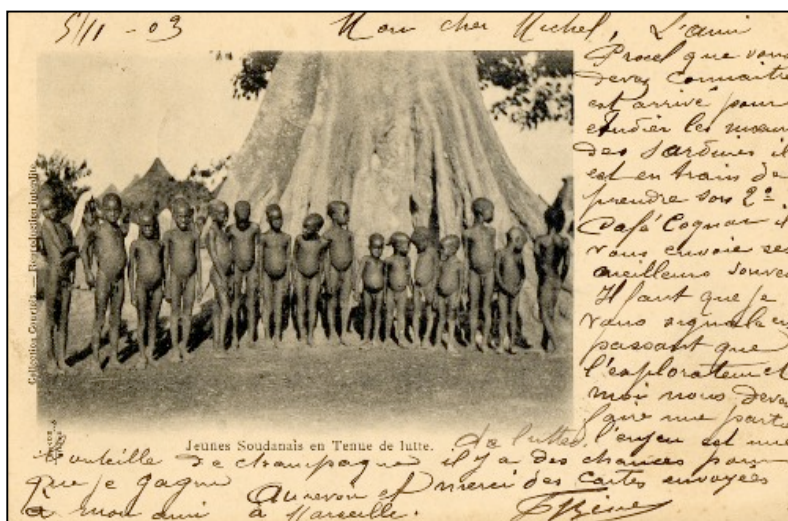 5/11 - 03 Mon cher Michel, L'ami
Procel que vous
devez connaitre
est arrivé pour
étudier les mœurs
des Sardines il
est en train de
prendre son 2e
Café Cognac il
vous envoie ses
meilleurs souve
Il faut que je
vous signale en
passant que
l'explorateur et
moi nous devons
faire une partie
de luttes, l'enjeu est une
bouteille de champagne il y a des chances pour
que je gagne Au revoir et merci des cartes envoyées
à mon ami à Marseille.
Collection Reproduction interdite
Jeunes Soudanais en Tenue de lutte.